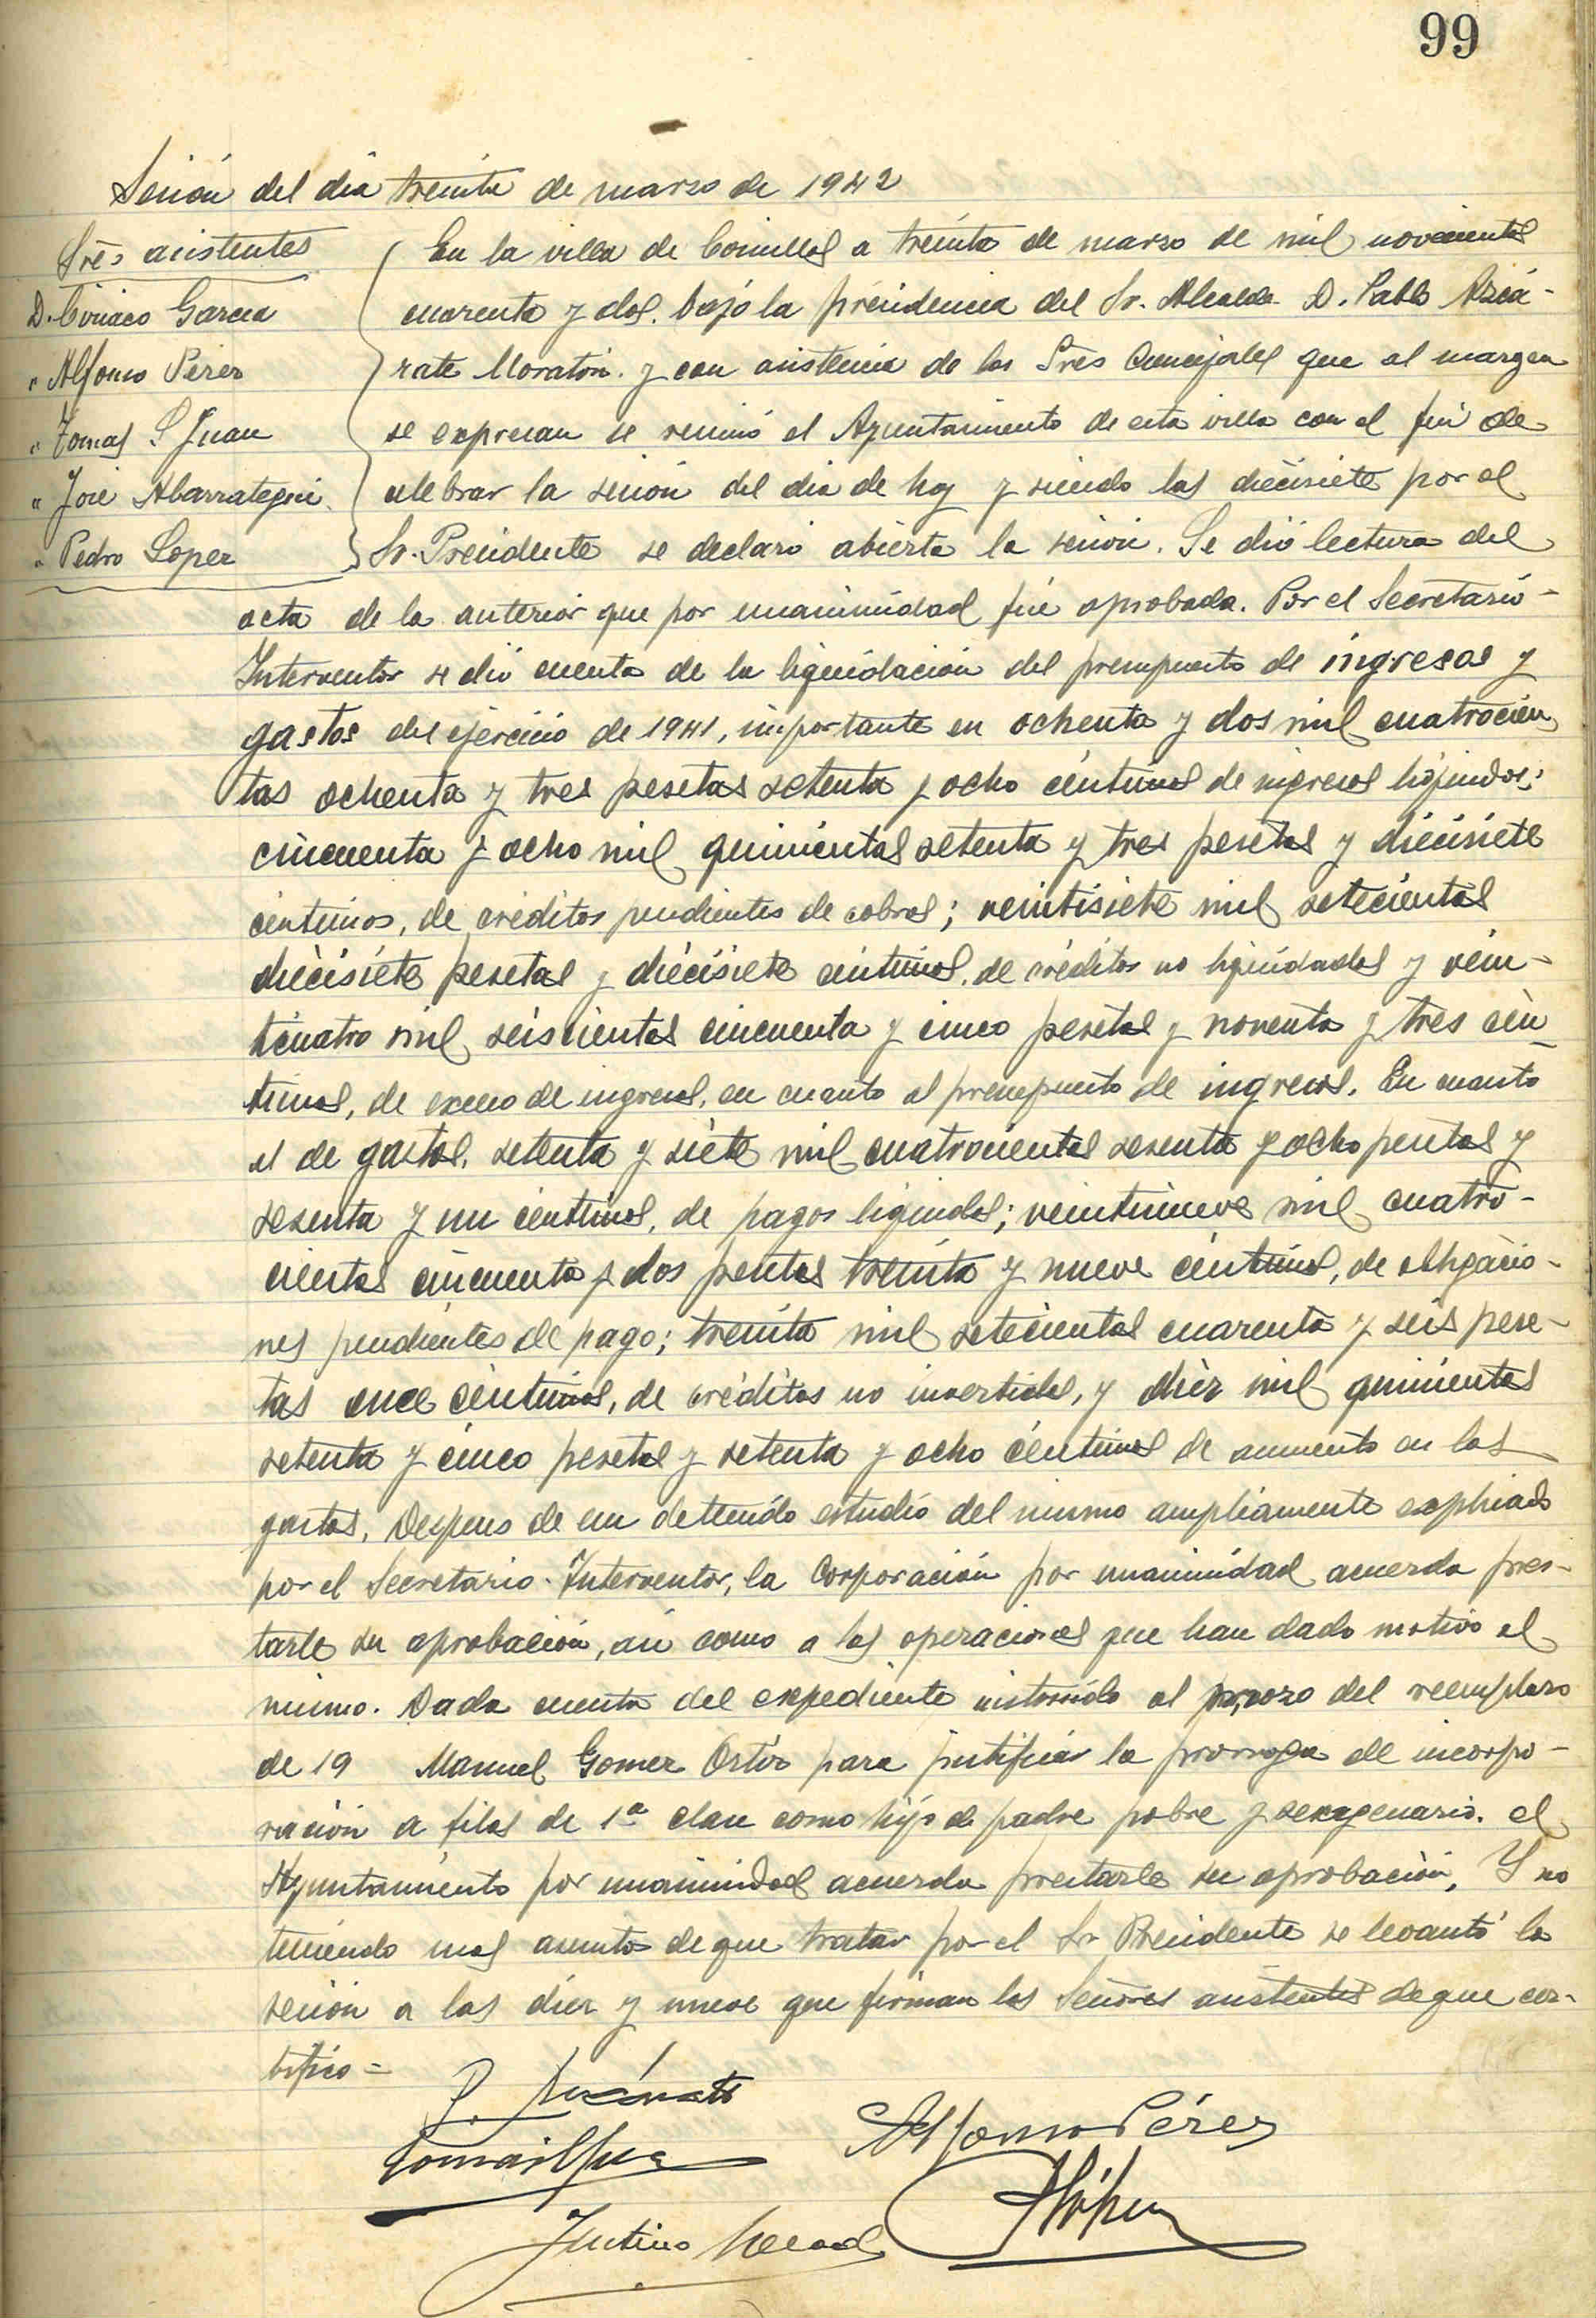 99
Sesión del dia treinta de marzo de 1942
Sres asistentes
D. Ciriaco Garcia
" Alfonso Perez
" Tomas S Juan
" José Abarrategui
" Pedro Lopez
En la villa de Comillas a treinta de marzo de mil novecientos
cuarenta y dos. bajo la presidencia del Sr. Alcalde D. Pablo Azcá-
rate Moratón. y con asistencia de los Sres Concejales que al margen
se expresan se reunió el Ayuntamiento de esta villa con el fin de
celebrar la sesión del dia de hoy y siendo las diecisiete por el
Sr. Presidente se declaró abierta la sesión. Se dió lectura del
acta de la anterior que por unanimidad fué aprobada. Por el Secretario-
Interventor se dió cuenta de la liquidación del presupuesto de ingresos y
gastos del ejercicio de 1941, importante en ochenta y dos mil cuatrocien
tas ochenta y tres pesetas setenta y ocho céntimos de ingresos líquidos;
cincuenta y ocho mil quinientas setenta y tres pesetas y diecisiete
céntimos, de créditos pendientes de cobros; veintisiete mil setecientas
diecisiete pesetas y diecisiete céntimos, de créditos no liquidados y vein-
ticuatro mil seiscientas cincuenta y cinco pesetas y noventa y tres cén-
timos, de exceso de ingresos, en cuanto al presupuesto de ingresos. En cuanto
al de gastos, setenta y siete mil cuatrocientas sesenta y ocho pesetas y
sesenta y un céntimos, de pagos líquidos; veintinueve mil cuatro-
cientas cincuenta y dos pesetas treinta y nueve céntimos, de obligacio-
nes pendientes de pago; treinta mil setecientas cuarenta y seis pese-
tas once céntimos, de créditos no invertidos, y diez mil quinientas
setenta y cinco pesetas y setenta y ocho céntimos de aumento en los
gastos. Despues de un detenido estudio del mismo ampliamente explicado
por el Secretario-Interventor, la Corporación por unanimidad acuerda pres-
tarle su aprobación, asi como a las operaciones que han dado motivo al
mismo. Dada cuenta del expediente instruido al mozo del reemplazo
de 19 Manuel Gomez Ortiz para justificar la prorroga de incorpo-
ración a filas de 1ª clase como hijo de padre pobre y sexagenario. el
Ayuntamiento por unanimidad acuerda prestarle su aprobación. Y no
teniendo mas asuntos de que tratar por el Sr Presidente se levantó la
sesión a las diez y nueve que firman los Señores asistentes de que cer-
tifico =
P. Azcárate
Alfonso Pérez
Tomás S Juan
P López
Justino